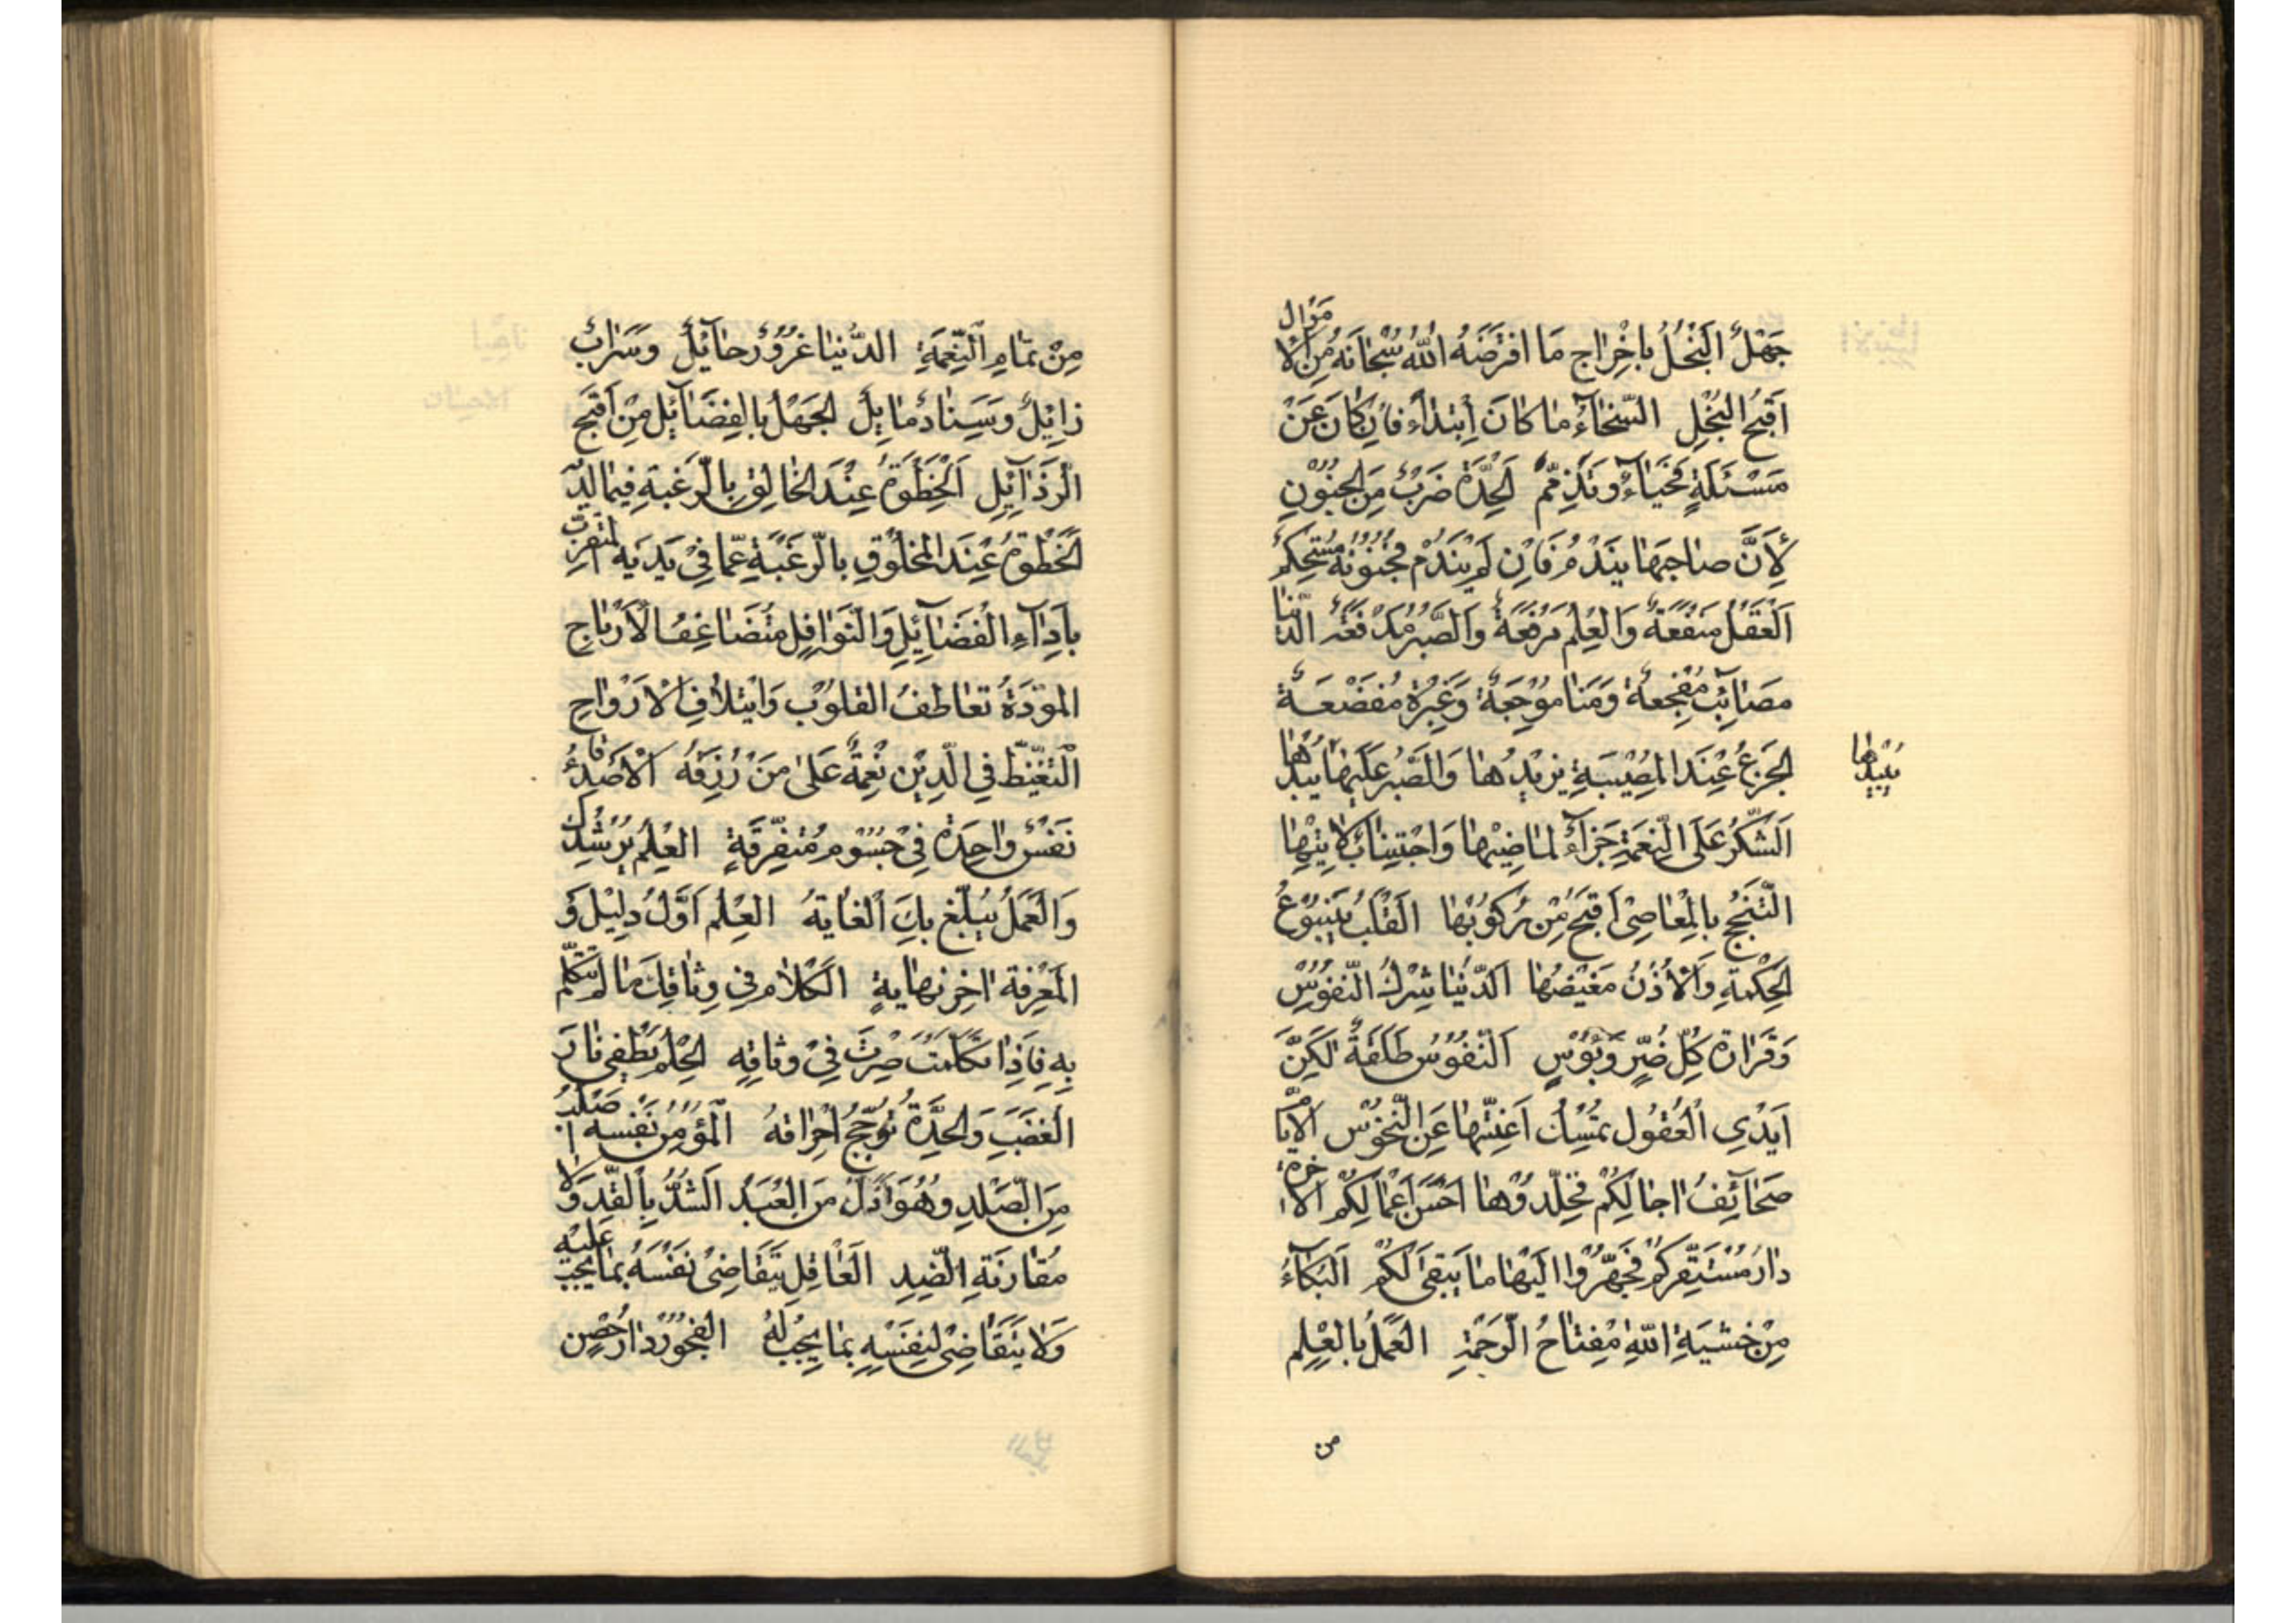 جَهْلٌ البُخْلُ بِاِخْرٰاجِ مَا افْتَرَضَهُ اللّٰهُ سُبْحٰانَهُ مِنَ الْاَمْوٰال
اَقْبَحُ الْبُخْلِ السَّخٰاءُ مٰا كٰانَ اِبْتِدٰاءً فَاِنْ كٰانَ عَنْ
مَسْئَلَةٍ فَحَيٰاءٌ وَتَذَمُّمٌ اَلْحِدَّةُ ضَرْبٌ مِنَ الْجُنُوْنِ
لِاَنَّ صٰاحِبَهٰا يَنْدَمُ فَاِنْ لَمْ يَنْدَمْ فَجُنُوْنُهُ مُسْتَحْكِمٌ
اَلْعَقْلُ مَنْفَعَةٌ وَالْعِلْمُ مَرْفَعَةٌ وَالصَّبْرُ مَدْفَعَةٌ الدُّنْيٰا
مَصٰائِبُ مُفْجِعَةٌ وَمَنٰايٰا مُوْجِعَةٌ وَعِبَرٌ مُفَضْعَةٌ
الجَزَعُ عِنْدَ الْمُصِيْبَةِ يَزِيْدُهٰا وَالصَّبْرُ عَلَيْهٰا يُبِيْدُهٰا
يُبِيْدُهٰا
اَلشُّكْرُ عَلَى النِّعْمَةِ جَزٰاءٌ لِمٰاضِيْهٰا وَاجْتِنٰابٌ لِاٰتِيْهٰا
التَّبَجُّحُ بِالْمَعٰاصِيْ اَقْبَحُ مِنْ رُكُوْبِهٰا القَلْبُ يَنْبُوْعُ
الْحِكْمَةِ وَالْاُذُنُ مَغِيْضُهٰا اَلدُّنْيٰا شَرَكُ النُّفُوْسِ
وَقَرٰارَةُ كُلِّ ضُرٍّ وَبُؤْسٍ اَلنُّفُوْسُ طَلِقَةٌ لٰكِنَّ
اَيْدِي الْعُقُول تُمْسِكُ اَعِنَّتَهٰا عَنِ النُّحُوْسِ الاَيّٰامُ
صَحٰائِفُ اٰجٰالِكُمْ فَخَلِّدُوْهٰا اَحْسَنَ اَعْمٰالِكُمْ الاٰخِرَةُ
دٰارُ مُسْتَقَرِّكُمْ فَجَهِّزُوْا اِلَيْهٰا مٰا يَبْقٰى لَكُمْ اَلْبُكٰاءُ
مِنْ خَشْيَةِ اللّٰهِ مِفْتٰاحُ الرَّحْمَةِ العَمَلُ بِالْعِلْمِ
من
مِنْ تَمٰامِ النِّعْمَةِ الدُّنْيٰا غُرُوْرٌ حٰائِلٌ وَسَرٰابٌ
زٰائِلٌ وَسِنٰادٌ مٰائِلٌ الجَهْلُ بِالْفَضٰائِلِ مِنْ اَقْبَحِ
الرَّذٰائِلِ اَلْحُظْوَةُ عِنْدَ الخٰالِقِ بِالرَّغْبَةِ فِيْمٰا لَدَيْهِ
الحُظْوَةُ عِنْدَ الْمَخْلُوْقِ بِالرَّغْبَةِ عَمّٰا فِيْ يَدَيْهِ المُتَقَرِّبُ
بِاَدٰاءِ الْفَضٰائِلِ وَالنَّوٰافِلِ مُتَضٰاعِفُ الْاَرْبٰاحِ
المَوَدَّةُ تَعٰاطُفُ القُلُوْبِ وَائْتِلٰافُ الْاَرْوٰاحِ
التَّيَقُّظُ فِي الدِّيْنِ نِعْمَةٌ عَلٰى مَنْ رُزِقَهُ الْاَصْدِقٰاءُ
نَفْسٌ وٰاحِدَةٌ فِيْ جُسُوْمٍ مُتَفَرِّقَةٍ العِلْمُ يُرْشِدُكَ
وَالْعَمَلُ يَبْلُغُ بِكَ الْغٰايَةَ العِلْمُ اَوَّلُ دَلِيْلٍ وَ
الْمَعْرِفَةُ اٰخِرُ نِهٰايَةٍ الكَلٰامُ فِيْ وِثٰاقِكَ مٰا لَمْ تَتَكَلَّمْ
بِهِ فَاِذٰا تَكَلَّمْتَ صِرْتَ فِيْ وِثٰاقِهِ الْحِلْمُ يُطْفِيْ نٰارَ
الغَضَبِ وَالْحِدَّةُ تُؤَجِّجُ اِحْرٰاقَهُ الْمُؤْمِنُ نَفْسُهُ اَصْلَبُ
مِنَ الصَّلْدِ وَهُوَ اَذَلُّ مِنَ الْعَبْدِ الشَّدُّ بِالْقِدِّ وَلٰا
مُقٰارَنَةُ الضِّدِ العٰاقِلُ يَتَقٰاضٰى نَفْسَهُ بِمٰا يَجِبُ عَلَيْهِ
وَلٰا يَتَقٰاضٰى لِنَفْسِهِ بِمٰا يَجِبُ لَهُ الفُجُوْرُ دٰارُ حِصْنِ